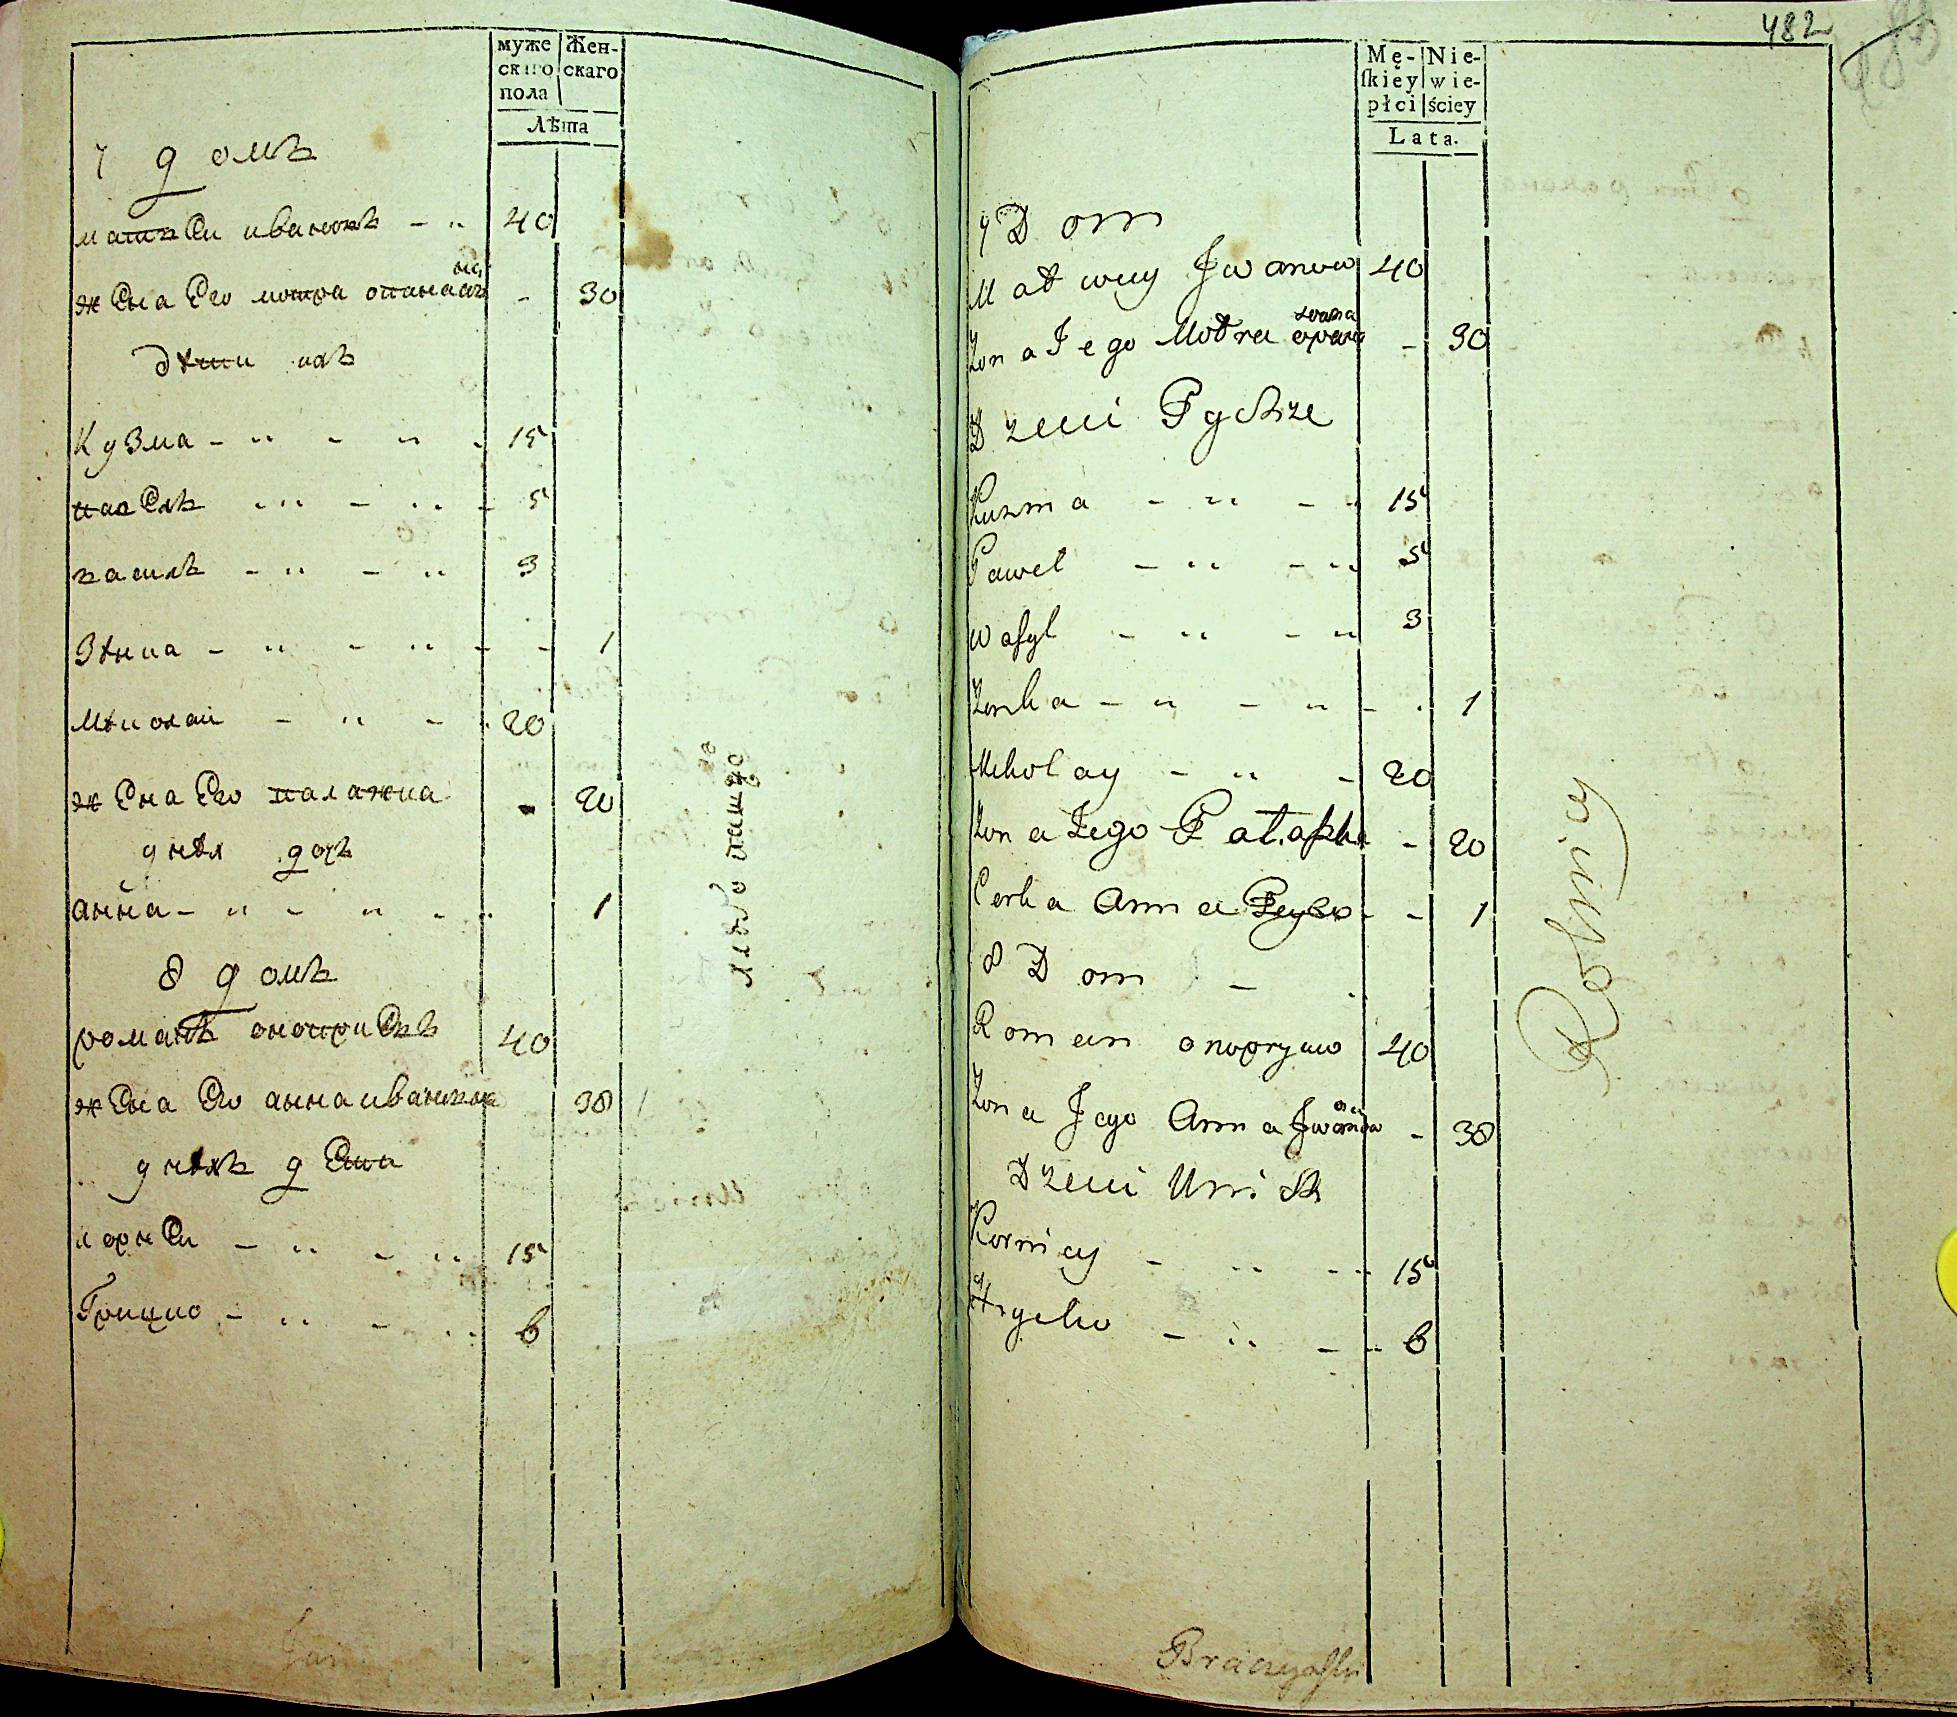 муже
скаго
пола
Жен-
скаго
Лѣта
7 домъ
матвеи ивановъ - " 40
на
жена его мотра опанасов - 30
дѣти ихъ
Кузма - " - " - 15
павелъ " - " - 5
василь - " - " 3
Зѣнка - " - " - - 1
Мѣколаи - " - 20
жена его - 20
у нѣя дочь
анна - " - " - " 1
8 домъ
романъ оноприевъ 40
жена его анна иванова 38
у нѣхъ дети
корнеи - " - " 15
Грицко - " - " 6
482
Mę-
ſkiey
płci
Nie-
wie-
ściey
Lata.
7 Dom
Matwey Jwanow 40
Zona Jego Motra - 30
Dzeci Tychze
Kuzma - " - " 15
Pawel - " - " 5
waſyl - " - " 3
Zenka - " - " - . 1
Mikolay - " - 20
Zona Jego - 20
Corka Anna - - 1
8 Dom -
Roman onopryiw 40
Zona Jego Anna Jwanowa - 38
Dzeci Unich
Korniey - " - " 15
Hrycko - " - " 6
Rolnicy
Jan